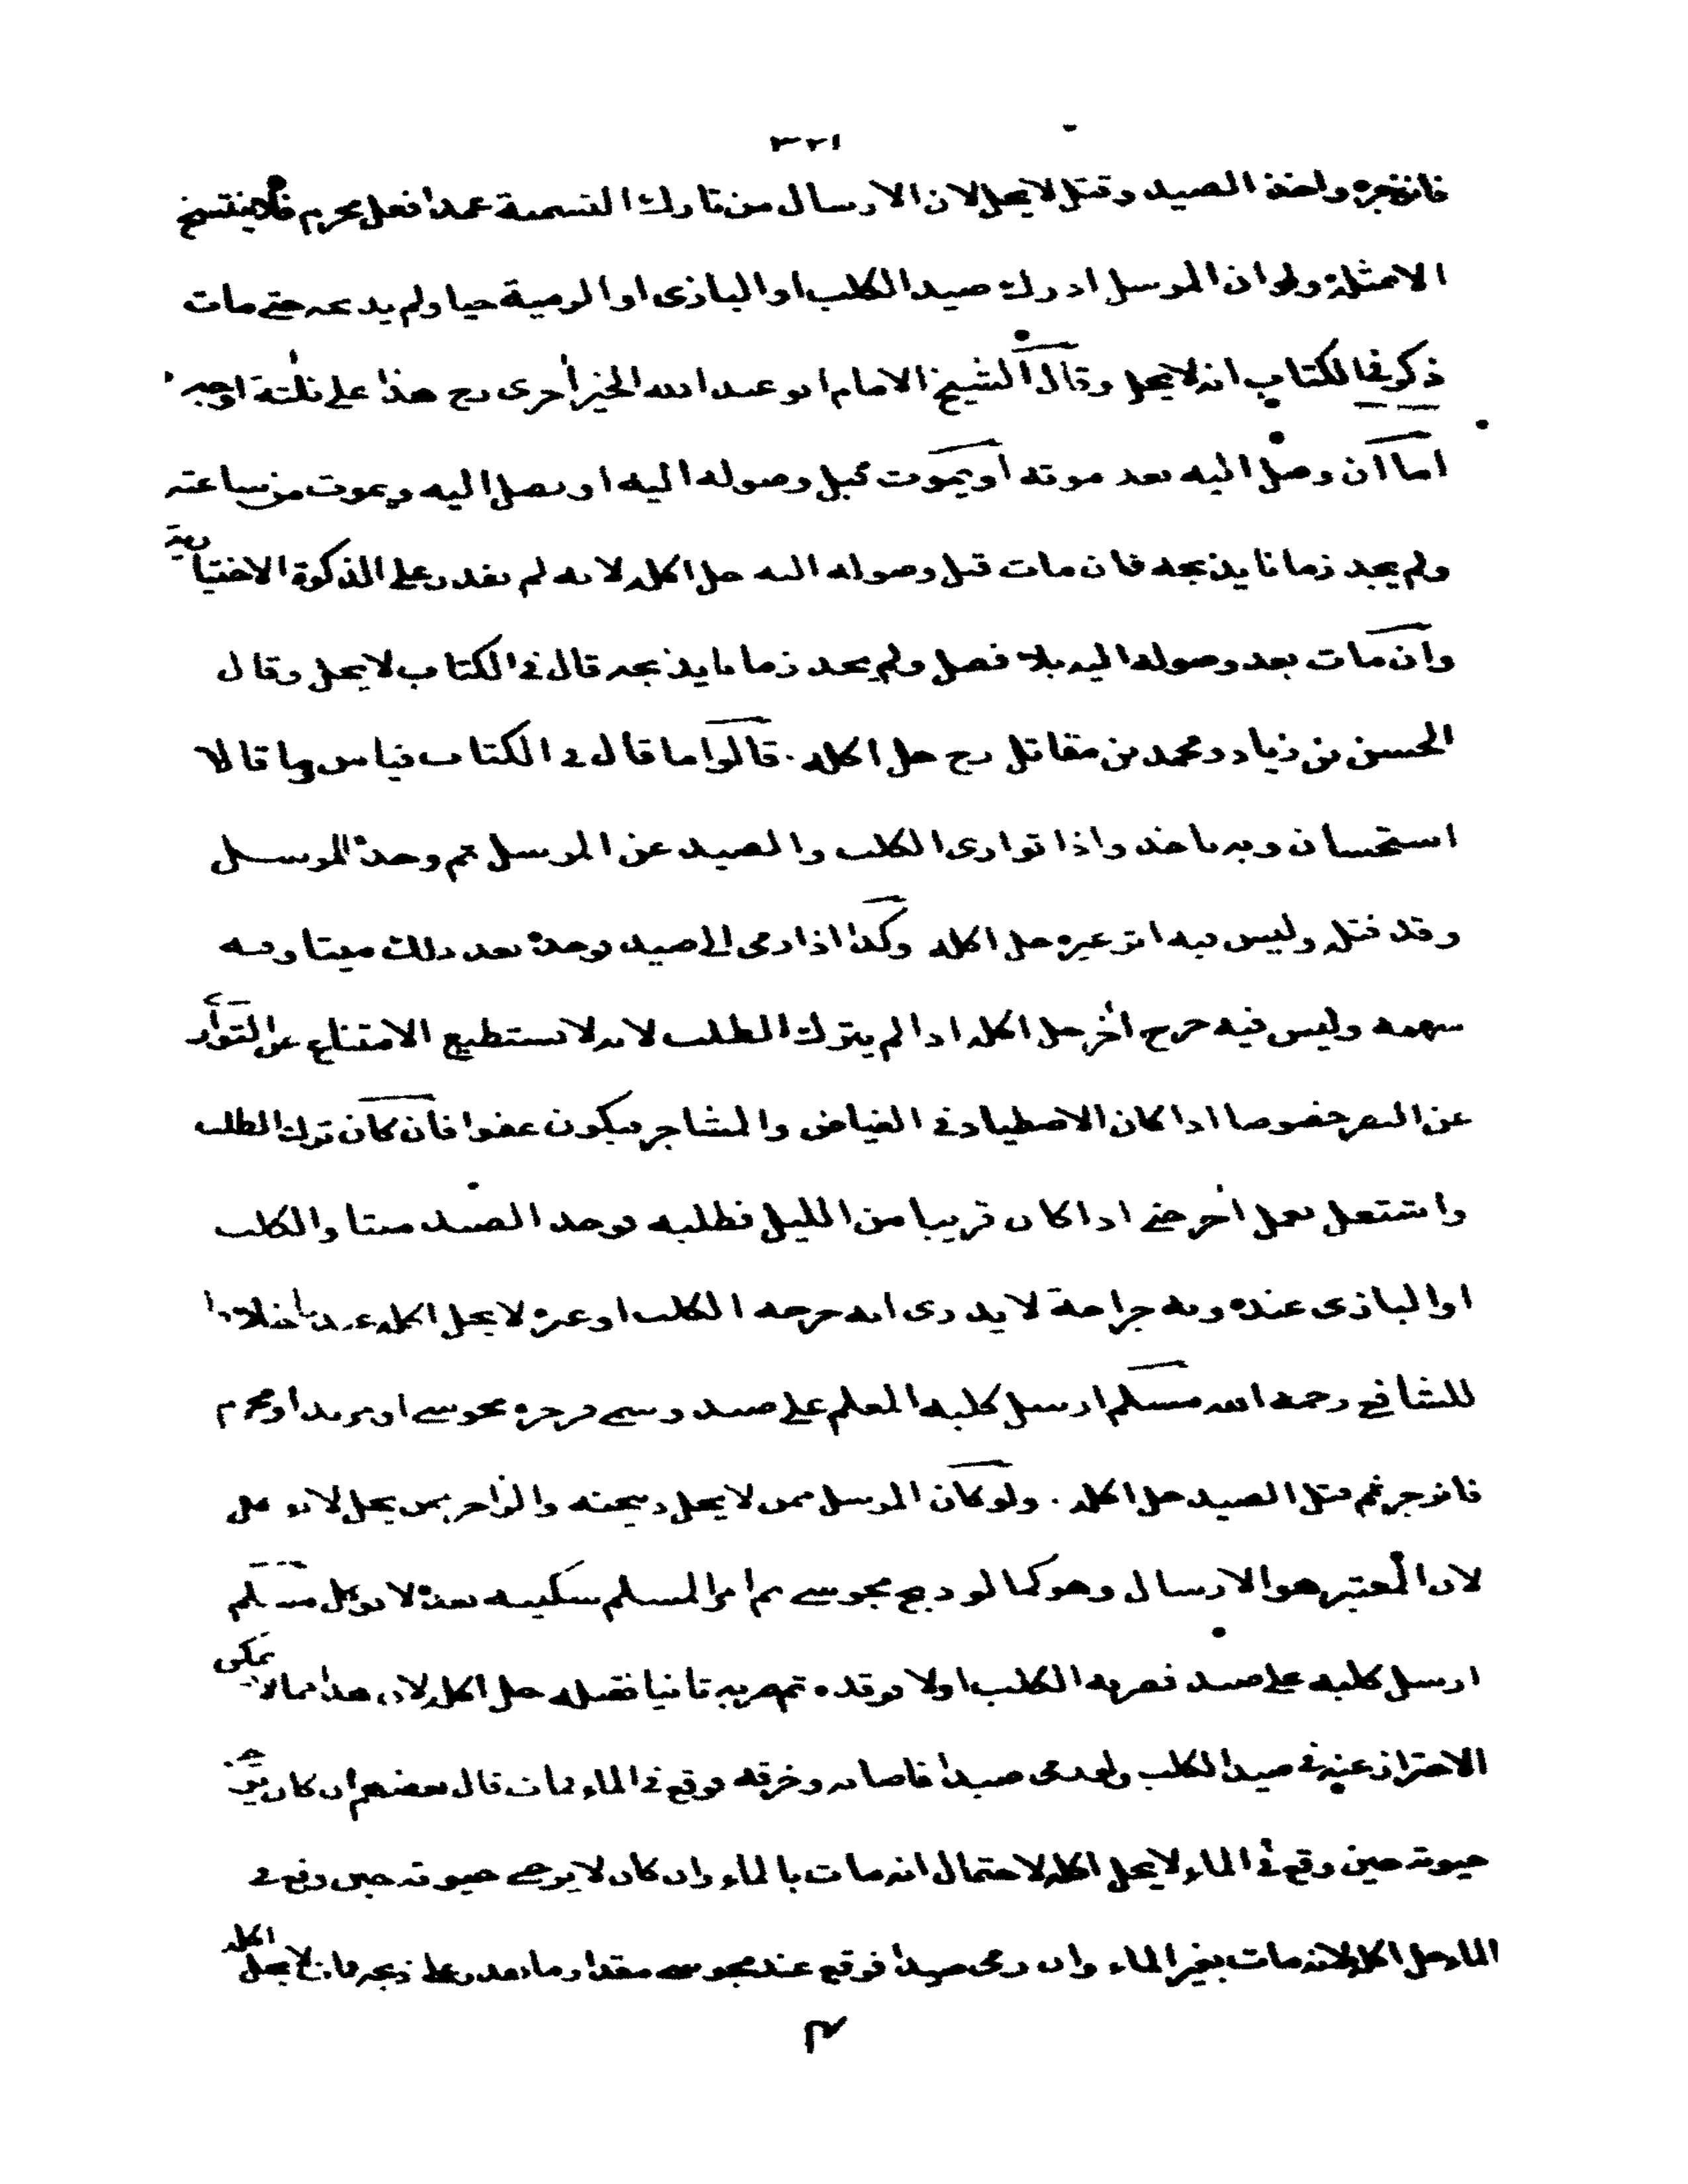 ٣٢١
فانزجره واخذ الصيد وقتل لا يحل لان الارسال من تارك التسمية عمدا فعل محرم فلا ينتسخ
الا بمثله ولو ان المرسل ادرك صيد الكلب او البازى او الرمية حيا ولم يدبحه حتى مات
ذكر فى الكتاب انه لا يحل وقال الشيخ الامام ابو عبد الله الخيزاخرى رح هذا على ثلثة اوجه
اما ان وصل اليه بعد موته او يموت قبل وصوله اليه او يصل اليه ويموت من ساعته
ولم يجد زمانا يذبحه فان مات قبل وصوله اليه حل اكله لانه لم يقدر على الذكوة الاختيارية
وان مات بعد وصوله اليه بلا فصل ولم يجد زمانا يذبحه قال فى الكتاب لا يحل وقال
الحسن بن زياد ومحمد بن مقاتل رح حل اكله . قالوا ما قال فى الكتاب قياس وما قالا
استحسان وبه ناخذ واذا توارى الكلب والصيد عن المرسل ثم وجده المرسل
وقد قتله وليس فيه اثر غيره حل اكله وكذا اذا رمى الى صيد فوجده بعد ذلك ميتا وفيه
سهمه وليس فيه جرح اخر حل اكله اذا لم يترك الطلب لانه لا يستطيع الامتناع عن التوارى
عن البصر خصوصا اذا كان الاصطياد فى الغياض والمشاجر فيكون عفوا فان كان ترك الطلب
واشتغل بعمل اخر حتى اذا كان قريبا من الليل فطلبه فوجد الصيد ميتا والكلب
او البازى عنده وبه جراحة لا يدرى انه جرحه الكلب او غيره لا يحل اكله عندنا خلافا
للشافعى رحمه الله مسلم ارسل كلبه المعلم على صيد وسمى فزجره مجوسى او مرتد او محرم
فانزجر ثم قتل الصيد حل اكله . ولو كان المرسل ممن لا يحل ذبيحته والزاجر ممن يحل لا يوكل
لان المعتبر هو الارسال وهو كما لو ذبح مجوسى ثم امر المسلم سكينه بعده لا يوكل مسلم
ارسل كلبه على صيد فضربه الكلب اولا فوقذه ثم ضربه ثانيا فقتله حل اكله لان هذا مما لا يمكن
الاحتراز عنه فى صيد الكلب ولو رمى صيدا فاصابه وخرقه فوقع فى الماء فمات قال بعضهم ان كان يرجى
حيوته حين وقع فى الماء لا يحل اكله لاحتمال انه مات بالماء وان كان لا يرجى حيوته حين وقع فى
الماء حل اكله لانه مات بغير الماء وان رمى صيدا فوقع عند مجوسى مقدار ما يقدر على ذبحه فمات لا يحل اكله